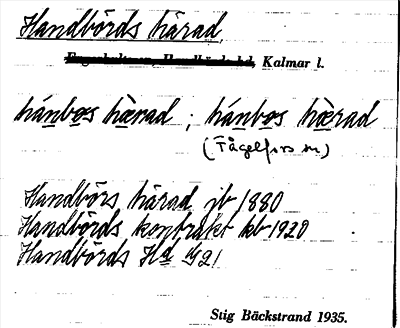 Handbörds härad,
Kalmar l.
hánbos hærad ; hánbos hærad
(Fågelfors sn)
Handbörs härad jb 1880
Handbörds kontrakt kb 1920
Handbörds Hd 1921
Stig Bäckstrand 1935.